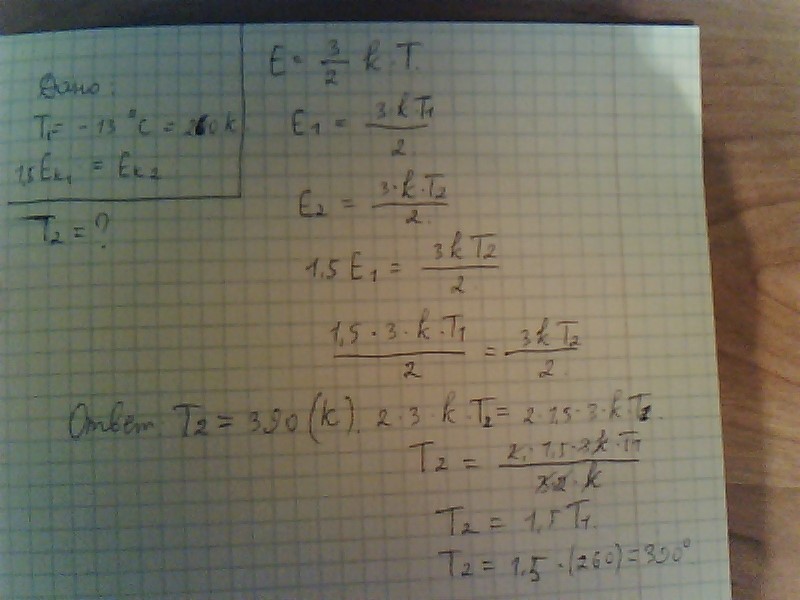 Дано:
T₁ = -13 °C = 260 k
1,5 Ek₁ = Ek₂
T₂ = ?
E = 3/2 k · T.
E₁ = 3·kT₁/2
E₂ = 3·k·T₂/2.
1.5 E₁ = 3kT₂/2
1,5 · 3 · k · T₁/2 = 3kT₂/2.
Ответ: T₂ = 390 (k).
2·3·k·T₂ = 2·1,5·3·k·T₁.
T₂ = 2·1,5·3k·T₁/3·2·k
T₂ = 1,5 T₁.
T₂ = 1.5 · (260) = 390°